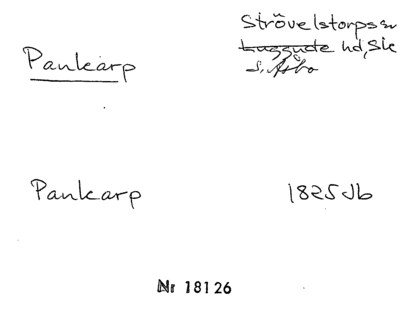 Strövelstorps sn
Pankarp
Luggude hd, Sk
S. Åsbo
Pankarp
1825 Jb
Nr 18126